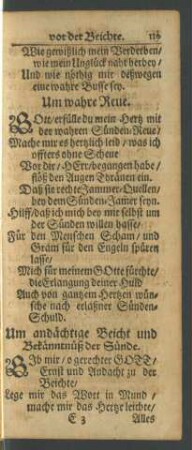 vor der Beichte.
Wie gewißlich mein Verderben/
wie mein Unglück naht herbey/
Und wie nöthig mir deßwegen
eine wahre Busse sey.
Um wahre Reue.
GOtt/ erfülle du mein Hertz mit
der wahren Sünden-Reue/
Mache mir es hertzlich leid/ was ich
offters ohne Scheue
Vor dir/ HErr/ begangen habe/
flöß den Augen Thränen ein.
Daß sie rechte Jammer-Quellen/
bey dem Sünden-Jamer seyn.
Hilff/ daß ich mich bey mir selbst um
der Sünden willen hasse/
Für den Menschen Scham/ und
Gräm für den Engeln spüren
lasse/
Mich für meinem GOtte fürchte/
die Erlangung deiner Huld
Auch von gantzem Hertzen wün-
sche nach erlaßner Sünden-
Schuld.
Um andächtige Beicht und
Bekänntnüß der Sünde.
GIb mir/ o gerechter GOTT/
Ernst und Andacht zu der
Beichte/
Lege mir das Wort in Mund/
mache mir das Hertze leichte/
E 3 Alles